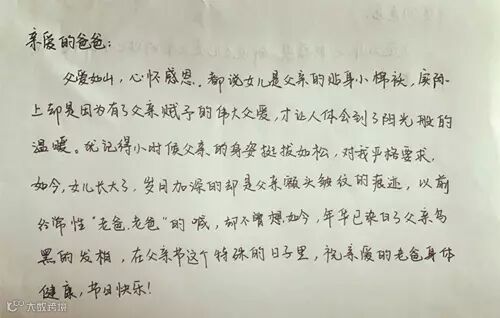 亲爱的爸爸:
父爱如山，心怀感恩。都说女儿是父亲的贴身小棉袄，实际
上却是因为有了父亲赋予的伟大父爱，才让人体会到了阳光般的
温暖。犹记得小时候父亲的身姿挺拔如松，对我严格要求，
如今，女儿长大了，岁月加深的却是父亲额头皱纹的痕迹，以前
经常性“老爸，老爸”的喊，却不曾想如今，年华已染白了父亲乌
黑的发梢，在父亲节这个特殊的日子里，祝亲爱的老爸身体
健康，节日快乐！
大数跨境